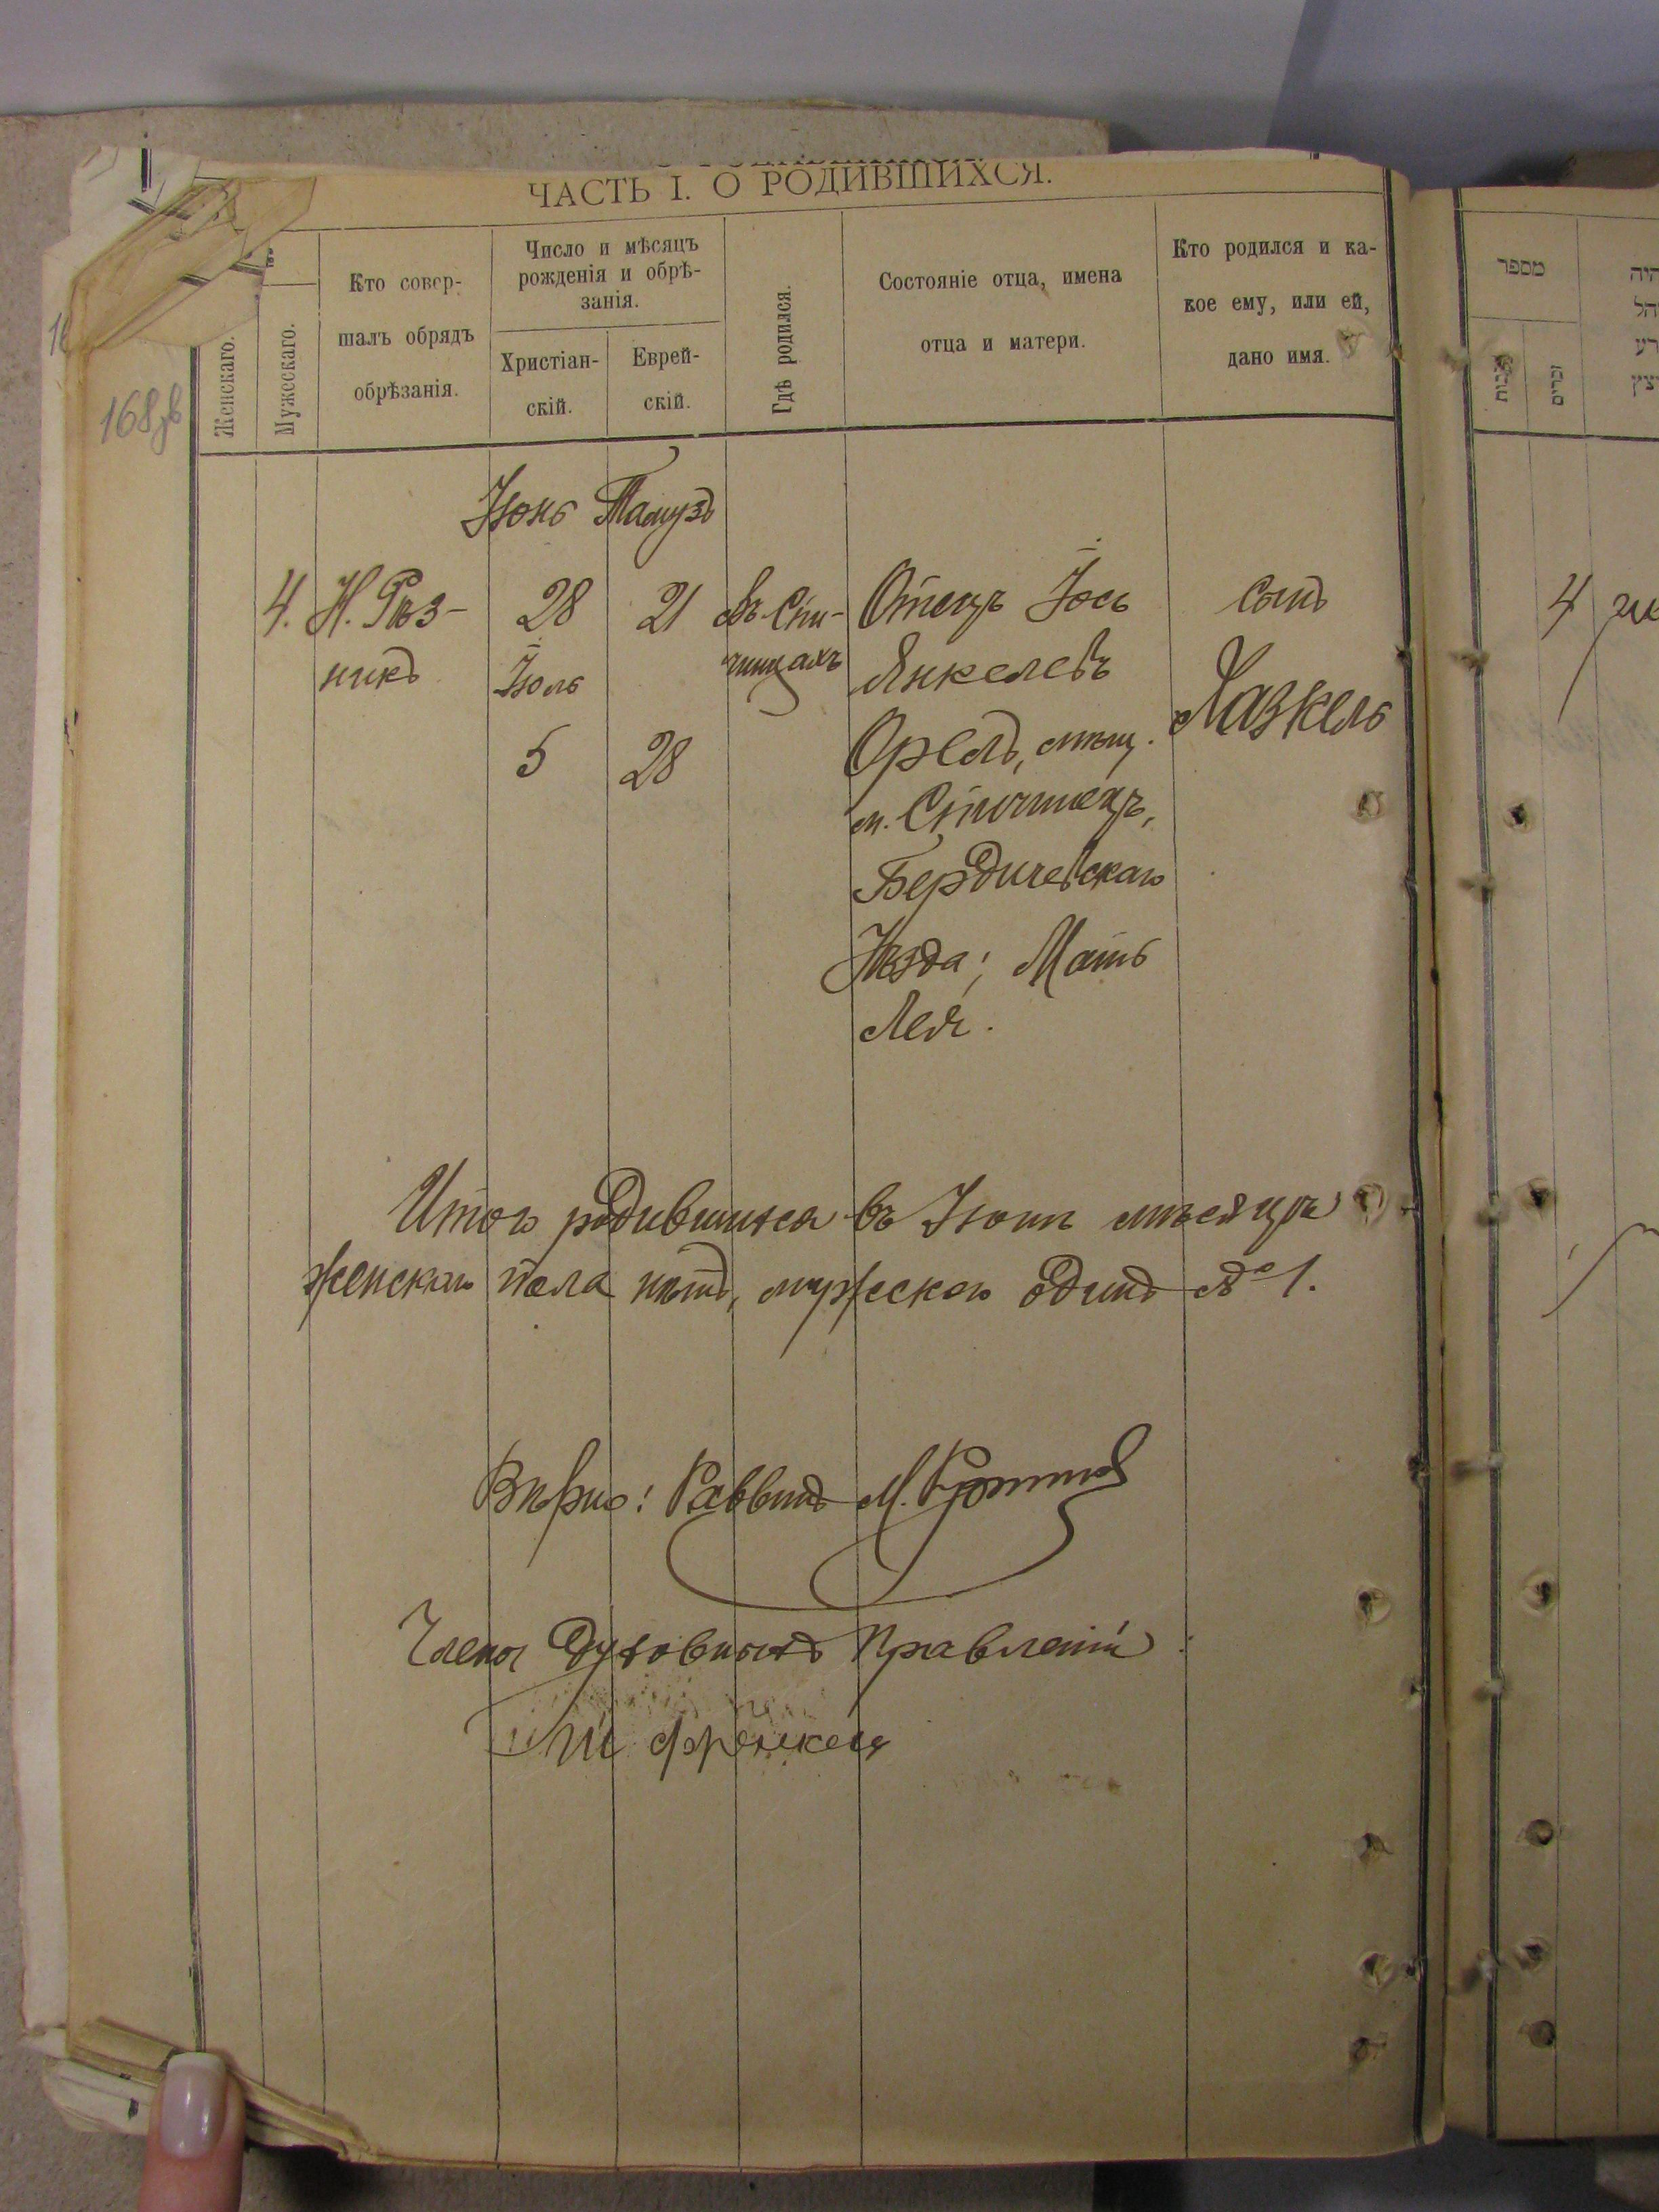 ЧАСТЬ I. О РОДИВШИХСЯ.
Женскаго.
Мужескаго.
Кто совер-
шалъ обрядъ
обрѣзанія.
Число и мѣсяцъ
рожденія и обрѣ-
занія.
Христіан-
скій.
Еврей-
скій.
Гдѣ родился.
Состояніе отца, имена
отца и матери.
Кто родился и ка-
кое ему, или ей,
дано имя.
168
Іюнь Тамузъ
4. Н. Рѣз-
никъ
28
Іюль
5
21
28
въ Спи-
чинцахъ
Отецъ Іось
Янкелевъ
Орелъ, мѣщ.
м. Спичинецъ,
Бердичевскаго
Уѣзда; Мать
Лея.
Сынъ
Хазкель
Итого родившихся въ Іюнѣ мѣсяцѣ
женскаго пола нѣтъ, мужескаго одинъ № 1.
Вѣрно: Раввинъ М.
Члены Духовныхъ Правленій:
Френкель
מספר
זכרים
4